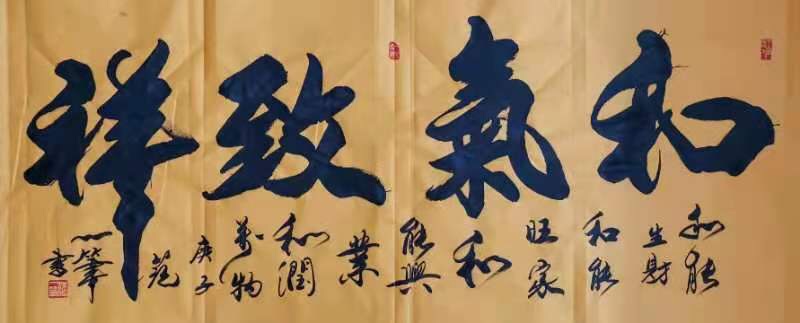 和氣致祥
和能生財和能旺家和能興業和潤萬物
庚子范一筆書